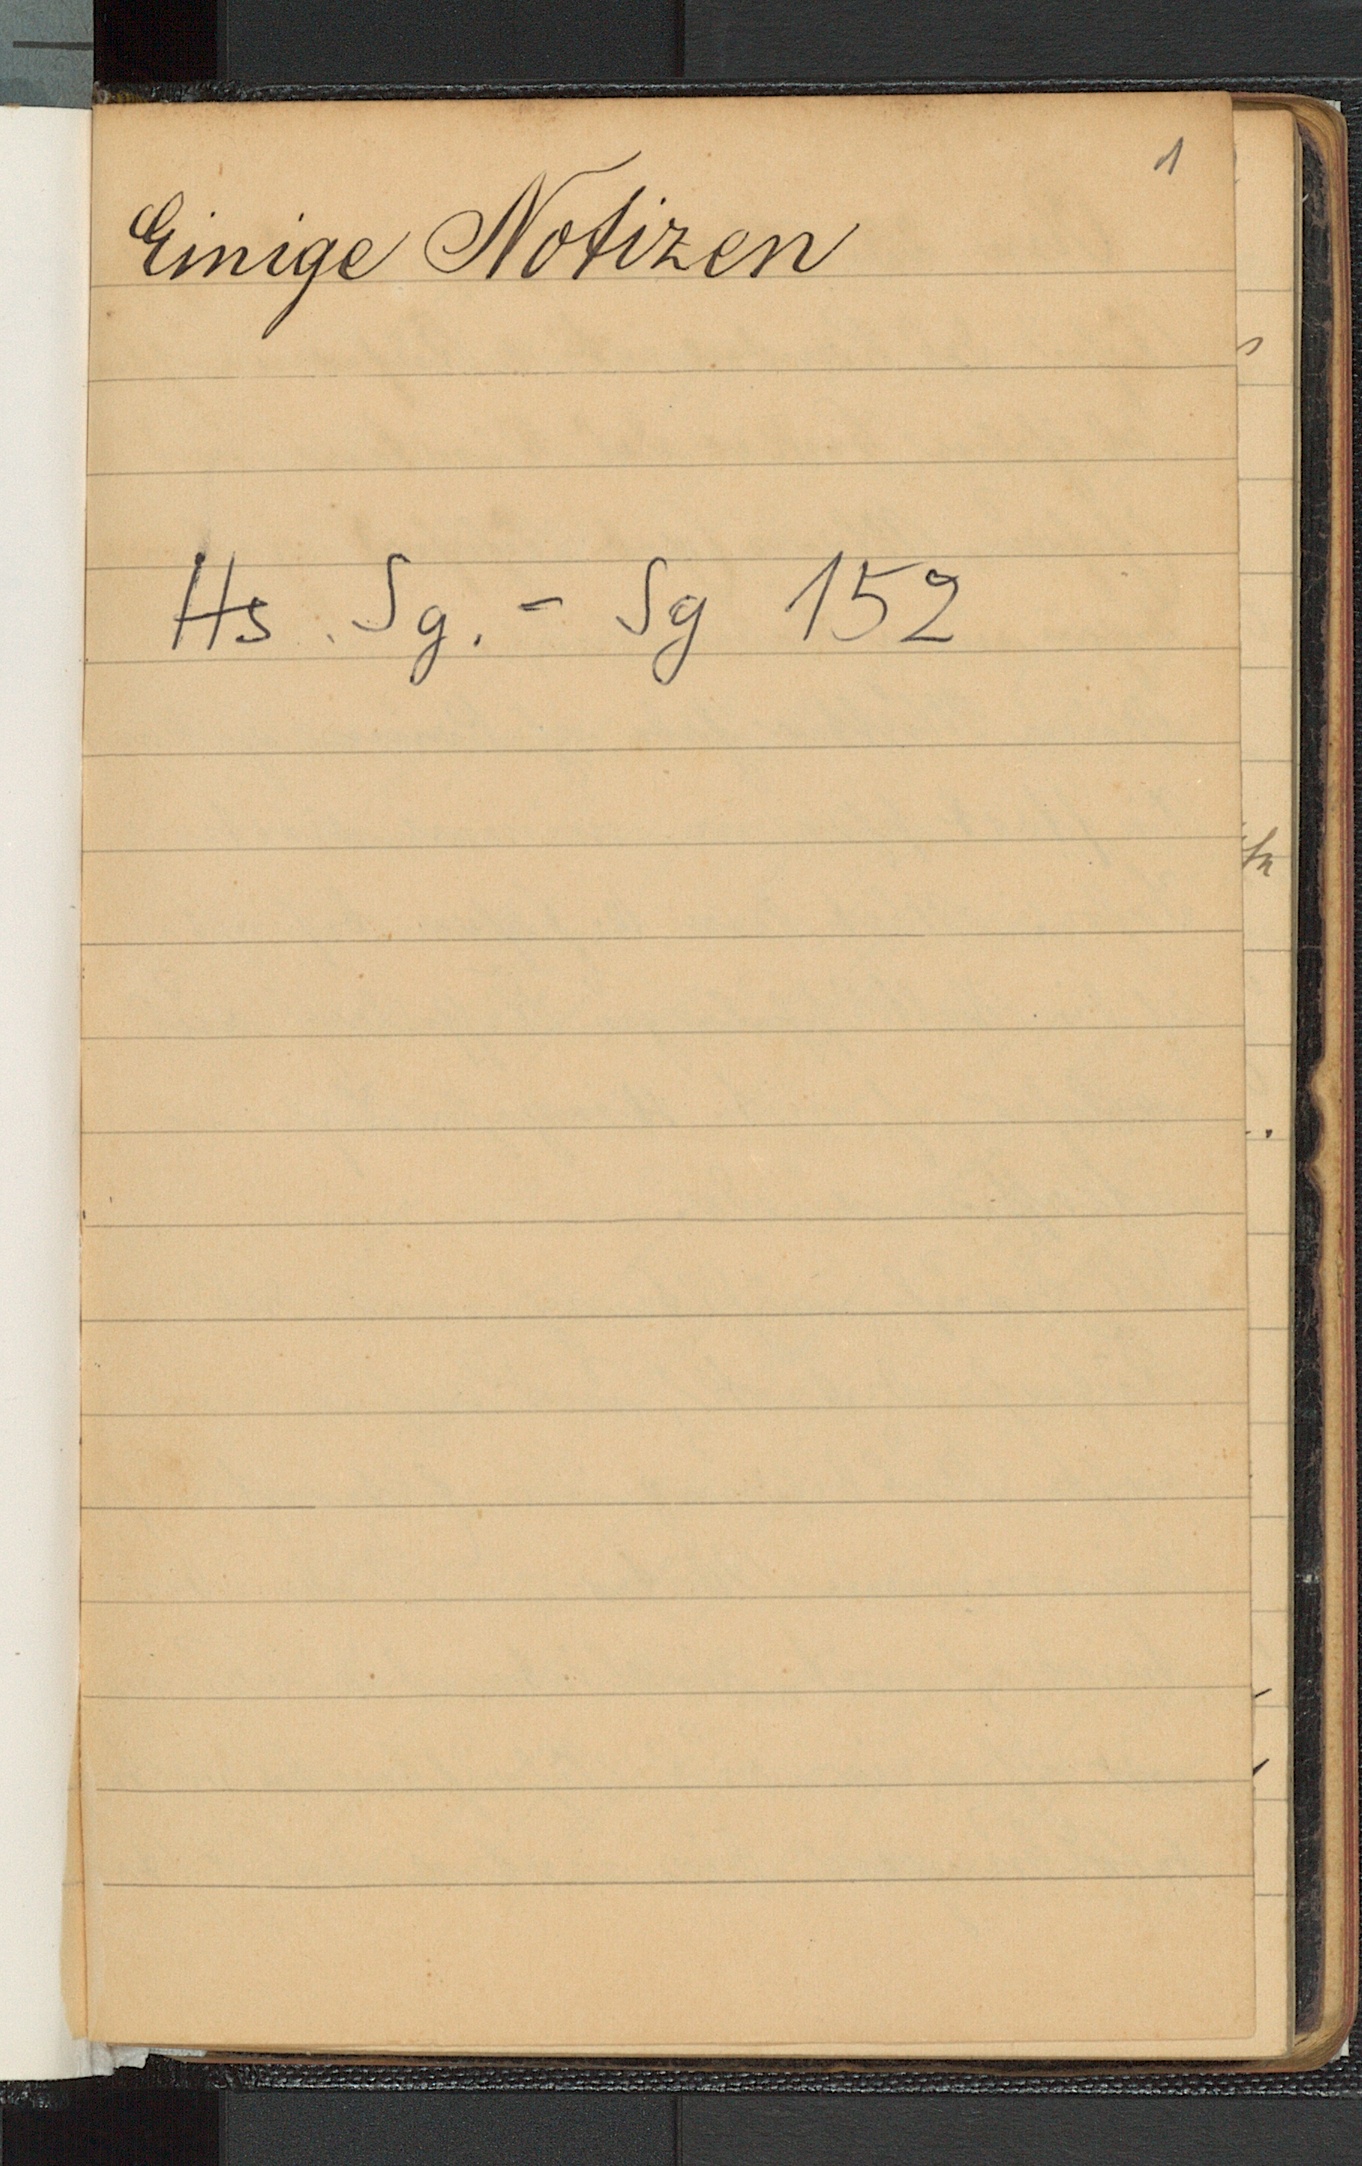 1
Einige Notizen
Hs. Sg. - Sg 152